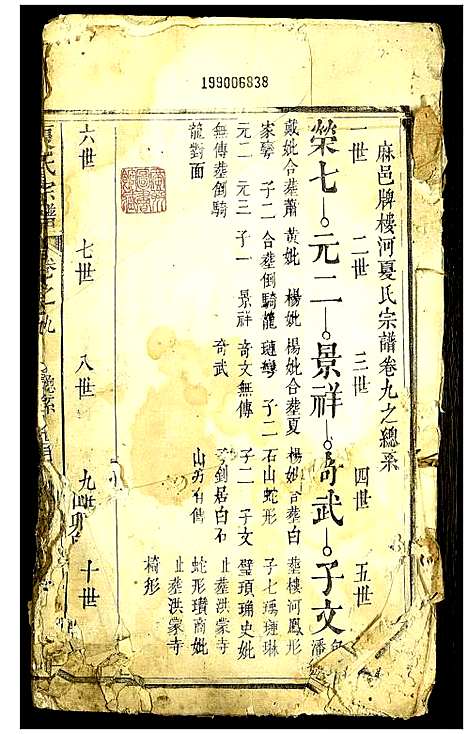 199006838
麻邑牌樓河夏氏宗譜卷九之總系
一世 二世 三世 四世 五世
榮七 元二 景祥 奇武 子文
戴妣合葬蕭 黄妣 楊妣 楊妣合葬夏 楊妣合葬白 葬樓河鳳形
家 子二 合葬倒騎龍 璉 子二 石山蛇形 子七 璉琳
元二 元三 子一 景祥 奇文無傳 子二 子文 璧瑣瑀史妣
無傳葬倒騎 奇武 子 居白石 止葬洪蒙寺
龍對面 山 蛇形瓚商妣
止葬洪蒙寺
椅形
六世 七世 八世 九世 十世
氏宗譜 卷之九